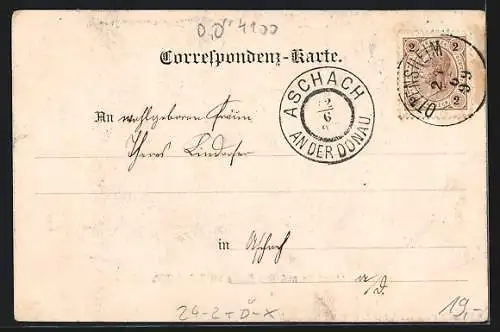 O,Ö 4100
Correspondenz-Karte.
2 2
2 2
OTTENSHEIM
99
ASCHACH
12
6
AN DER DONAU
An wohlgeboren Fräulein
Lindorfer
in Aschach
a/D.
24-2+Ö-X
19,-